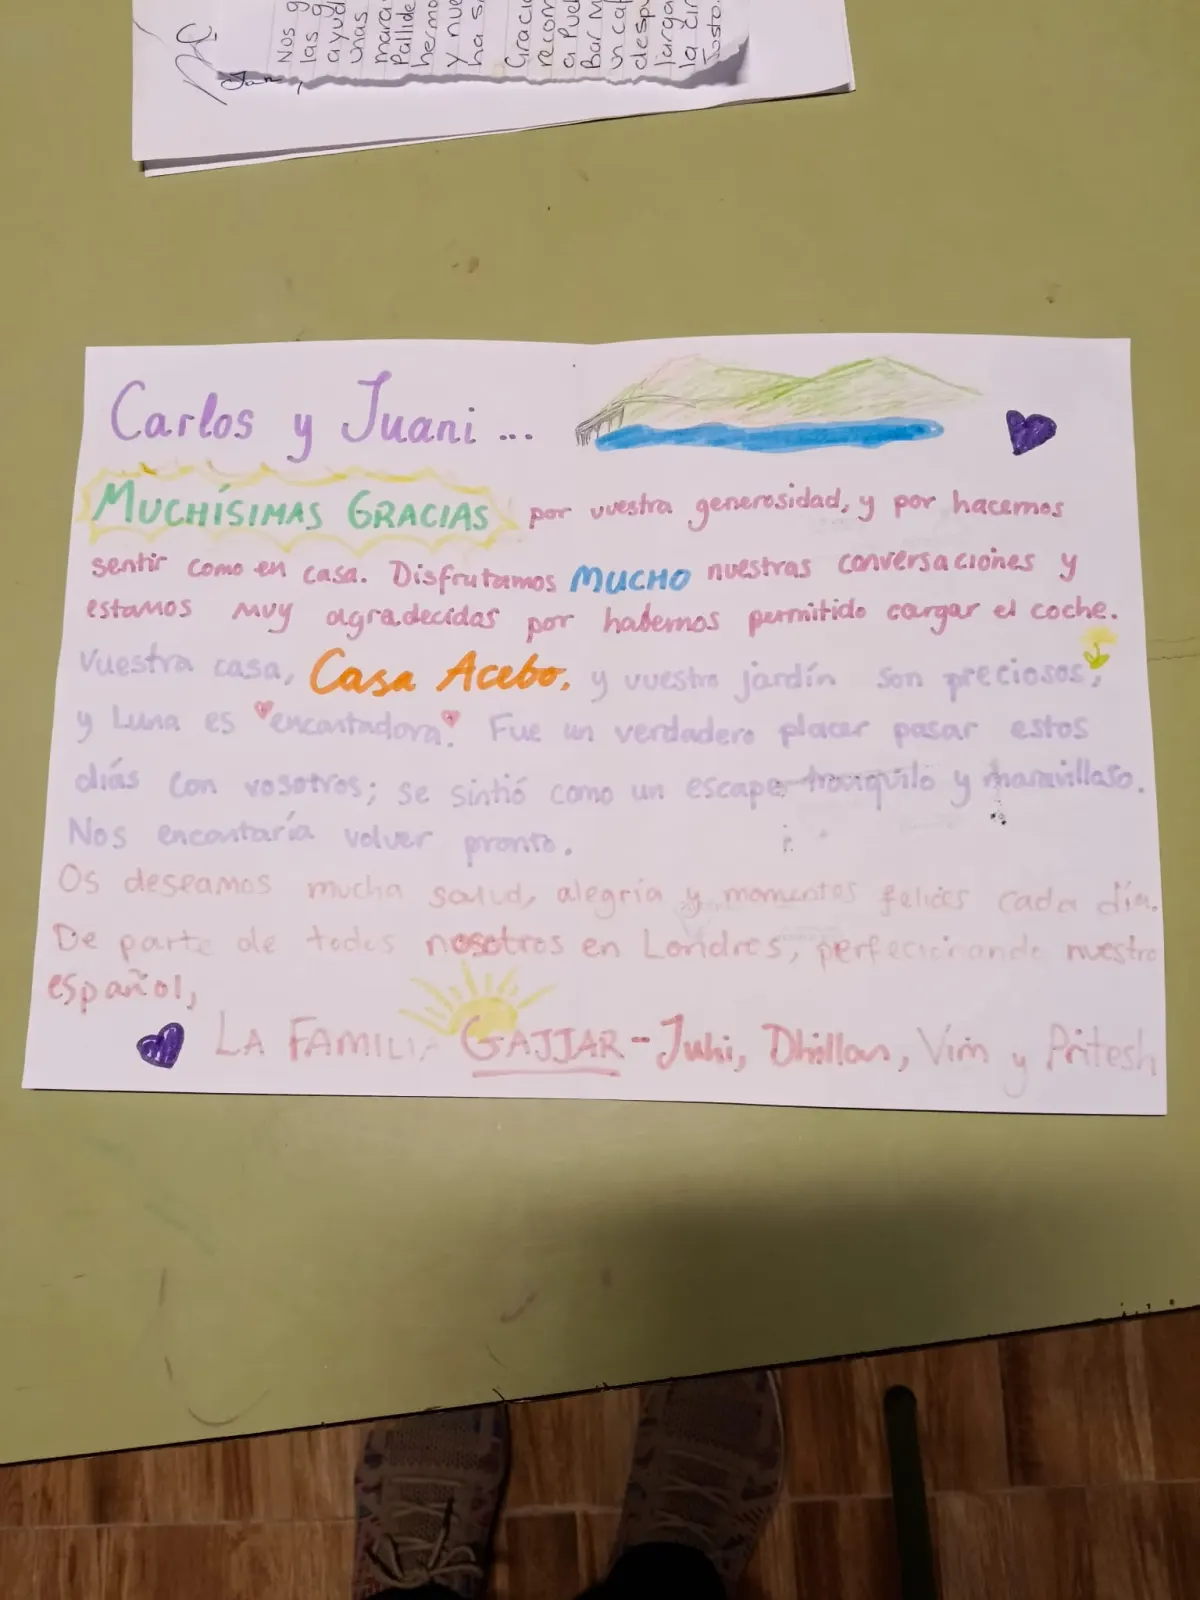 Nos g
las g
ayudi
unas
mara
Pallide
hermo
y nue
ha s
Graci
recom
a Pue
Bar M
un caf
despu
larga
la cir
Justo.
Carlos y Juani ...
MUCHÍSIMAS GRACIAS por vuestra generosidad, y por hacernos
sentir como en casa. Disfrutamos MUCHO nuestras conversaciones y
estamos muy agradecidas por habernos permitido cargar el coche.
Vuestra casa, Casa Acebo, y vuestro jardín son preciosos,
y Luna es encantadora. Fue un verdadero placer pasar estos
diás con vosotros; se sintió como un escape tranquilo y maravilloso.
Nos encantaría volver pronto.
Os deseamos mucha salud, alegría y momentos felices cada día.
De parte de todos nosotros en Londres, perfecionando nuestro
español,
LA FAMILIA GAJJAR - Juhi, Dhillan, Vim y Pritesh